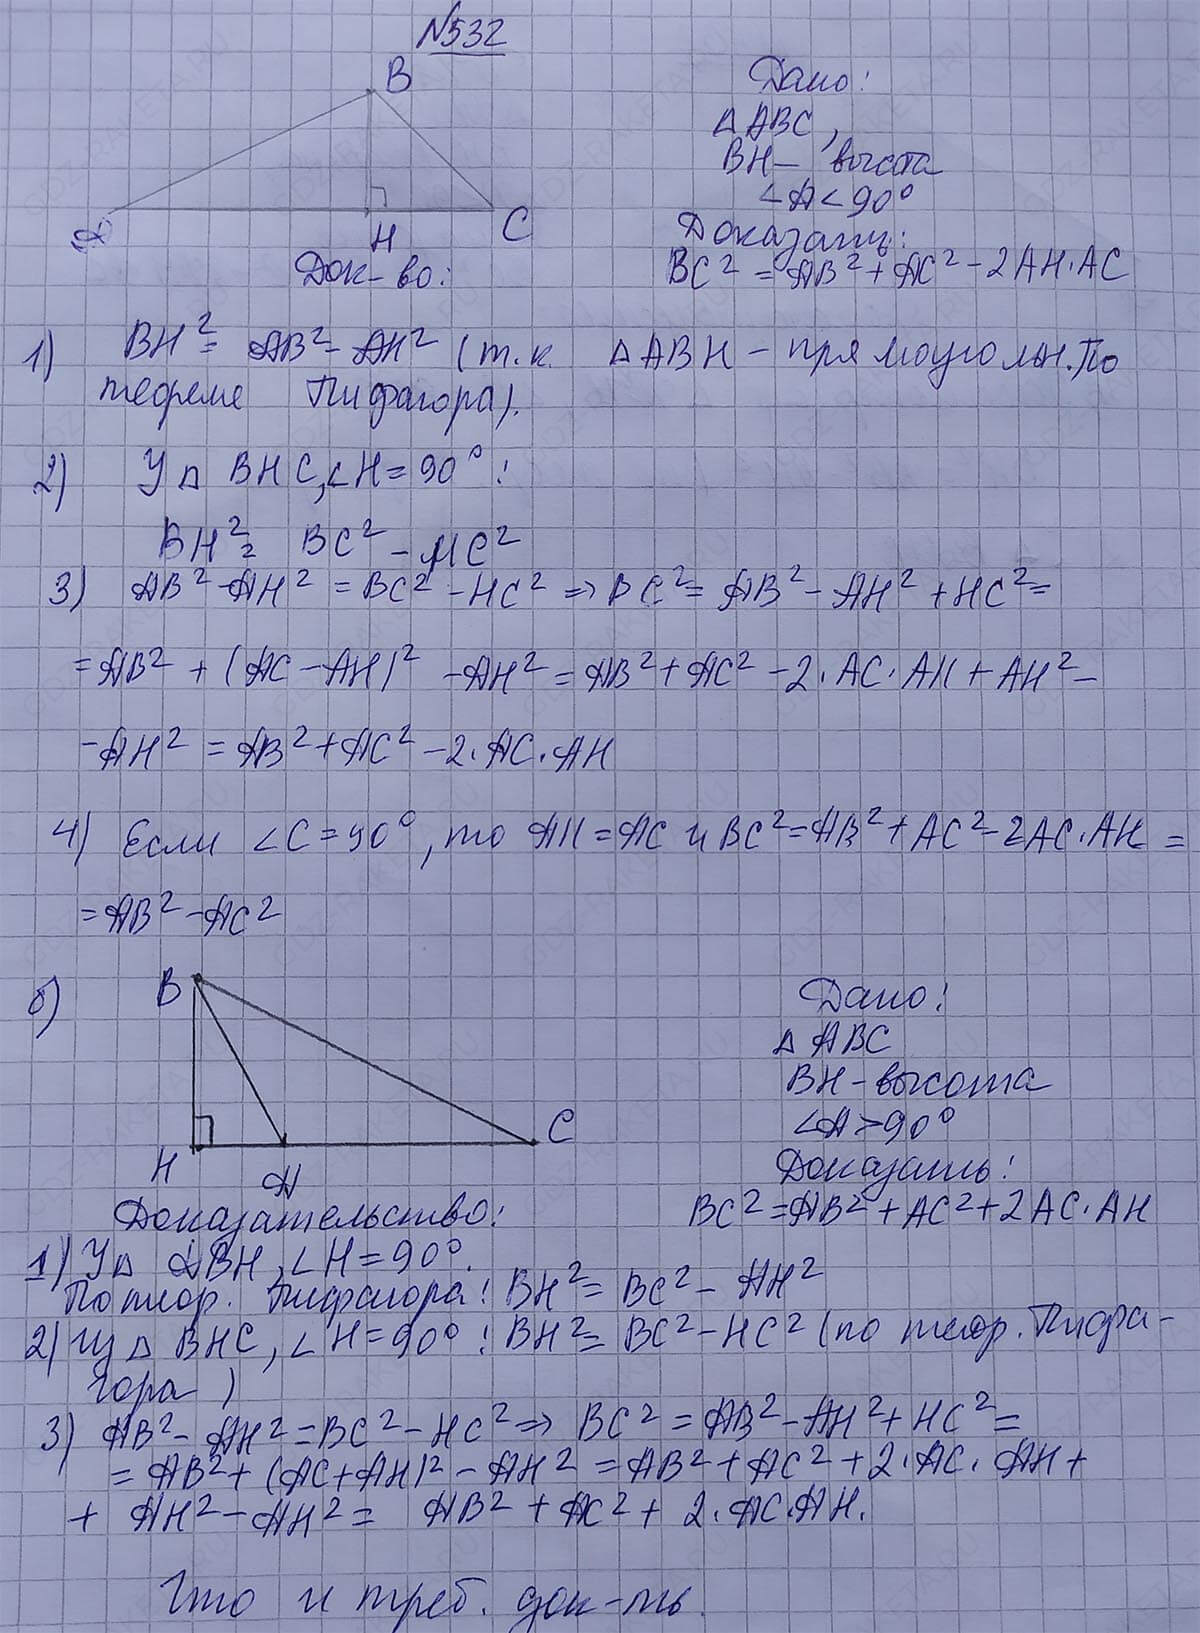 №532
B
A
H
C
Дано:
△ABC,
BH — высота
∠A<90°
Доказать:
BC² = AB² + AC² - 2AH·AC
Док-во:
1) BH² = AB² - AH² (т.к. △ABH - прямоугольн. По
теореме Пифагора).
2) У△ BHC, ∠H=90°:
BH² = BC² - HC²
3) AB² - AH² = BC² - HC² => BC² = AB² - AH² + HC² =
= AB² + (AC - AH)² - AH² = AB² + AC² - 2·AC·AH + AH² -
- AH² = AB² + AC² - 2·AC·AH
4) Если ∠C=90°, то AH = AC и BC² = AB² + AC² - 2AC·AH =
= AB² - AC²
б)
B
H
A
C
Дано:
△ ABC
BH - высота
∠A>90°
Доказать:
BC² = AB² + AC² + 2AC·AH
Доказательство:
1) У△ ABH, ∠H=90°.
По теор. Пифагора: BH² = BC² - AH²
2) Из △ BHC, ∠H=90°: BH² = BC² - HC² (по теор. Пифа-
гора)
3) AB² - AH² = BC² - HC² => BC² = AB² - AH² + HC² =
= AB² + (AC + AH)² - AH² = AB² + AC² + 2·AC·AH +
+ AH² - AH² = AB² + AC² + 2·AC·AH.
Что и треб. док-ть.